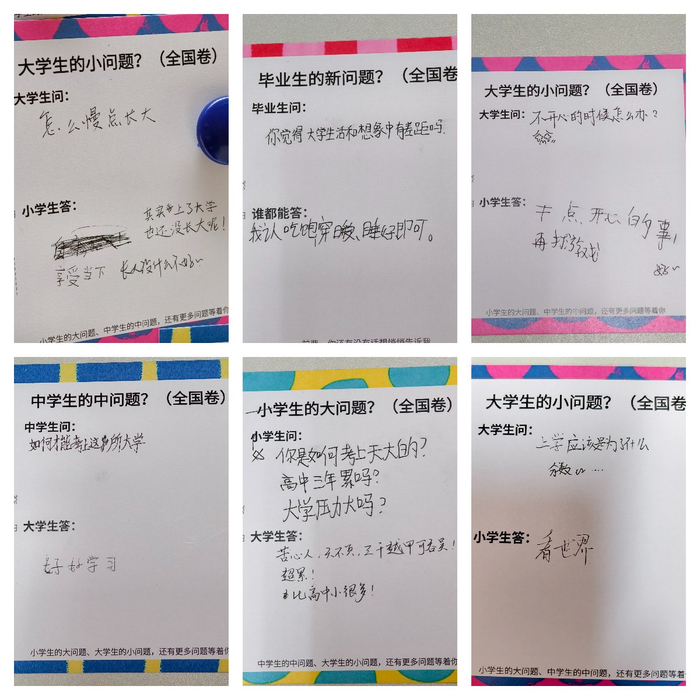 大学生的小问题？（全国卷）
大学生问：
怎么慢点长大
小学生答：
其实上了大学
也还没长大呢！
享受当下 长大没什么不好~
小学生的大问题、中学生的中问题，还有更多问题等着你
毕业生的新问题？（全国卷
毕业生问：
你觉得大学生活和想象中有差距吗
谁都能答：
我认吃饱穿暖、睡好即可。
大学生的小问题？（全国卷）
大学生问：
不开心的时候怎么办？
小学生答：
干点开心的事！
再找
小学生的大问题、中学生的小问题，还有更多问题等着你
中学生的中问题？（全国卷）
中学生问：
如何才能考上这所大学
大学生答：
好好学习
小学生的大问题、大学生的小问题，还有更多问题等着
小学生的大问题？（全国卷）
小学生问：
你是如何考上天大的？
高中三年累吗？
大学压力大吗？
大学生答：
苦心人，天不负，三千越甲可吞吴！
超累！
比高中小很多！
中学生的中问题、大学生的小问题，还有更多问题等着你
大学生的小问题？（全国卷
大学生问：
上学应该是为了什么
小学生答：
看世界
小学生的大问题、中学生的中问题，还有更多问题等着